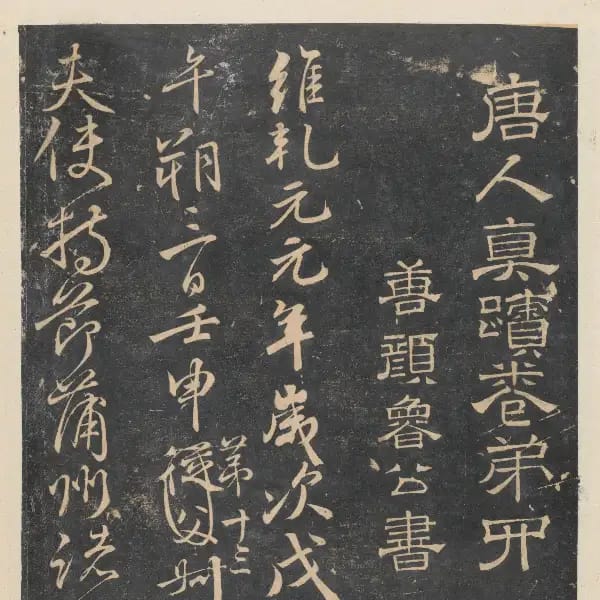 唐人真蹟卷弟四
善顏魯公書
維乹元元年歲次戊
午朔三日壬申從父
第十三
夫使持節蒲州諸